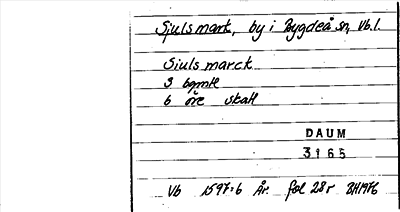 Sjulsmark, by i Bygdeå sn, Vb.l.
Siulsmarck
3 bgmtl
6 öre skatt
DAUM
3165
Vb 1597:6 År. fol 28r BH1976